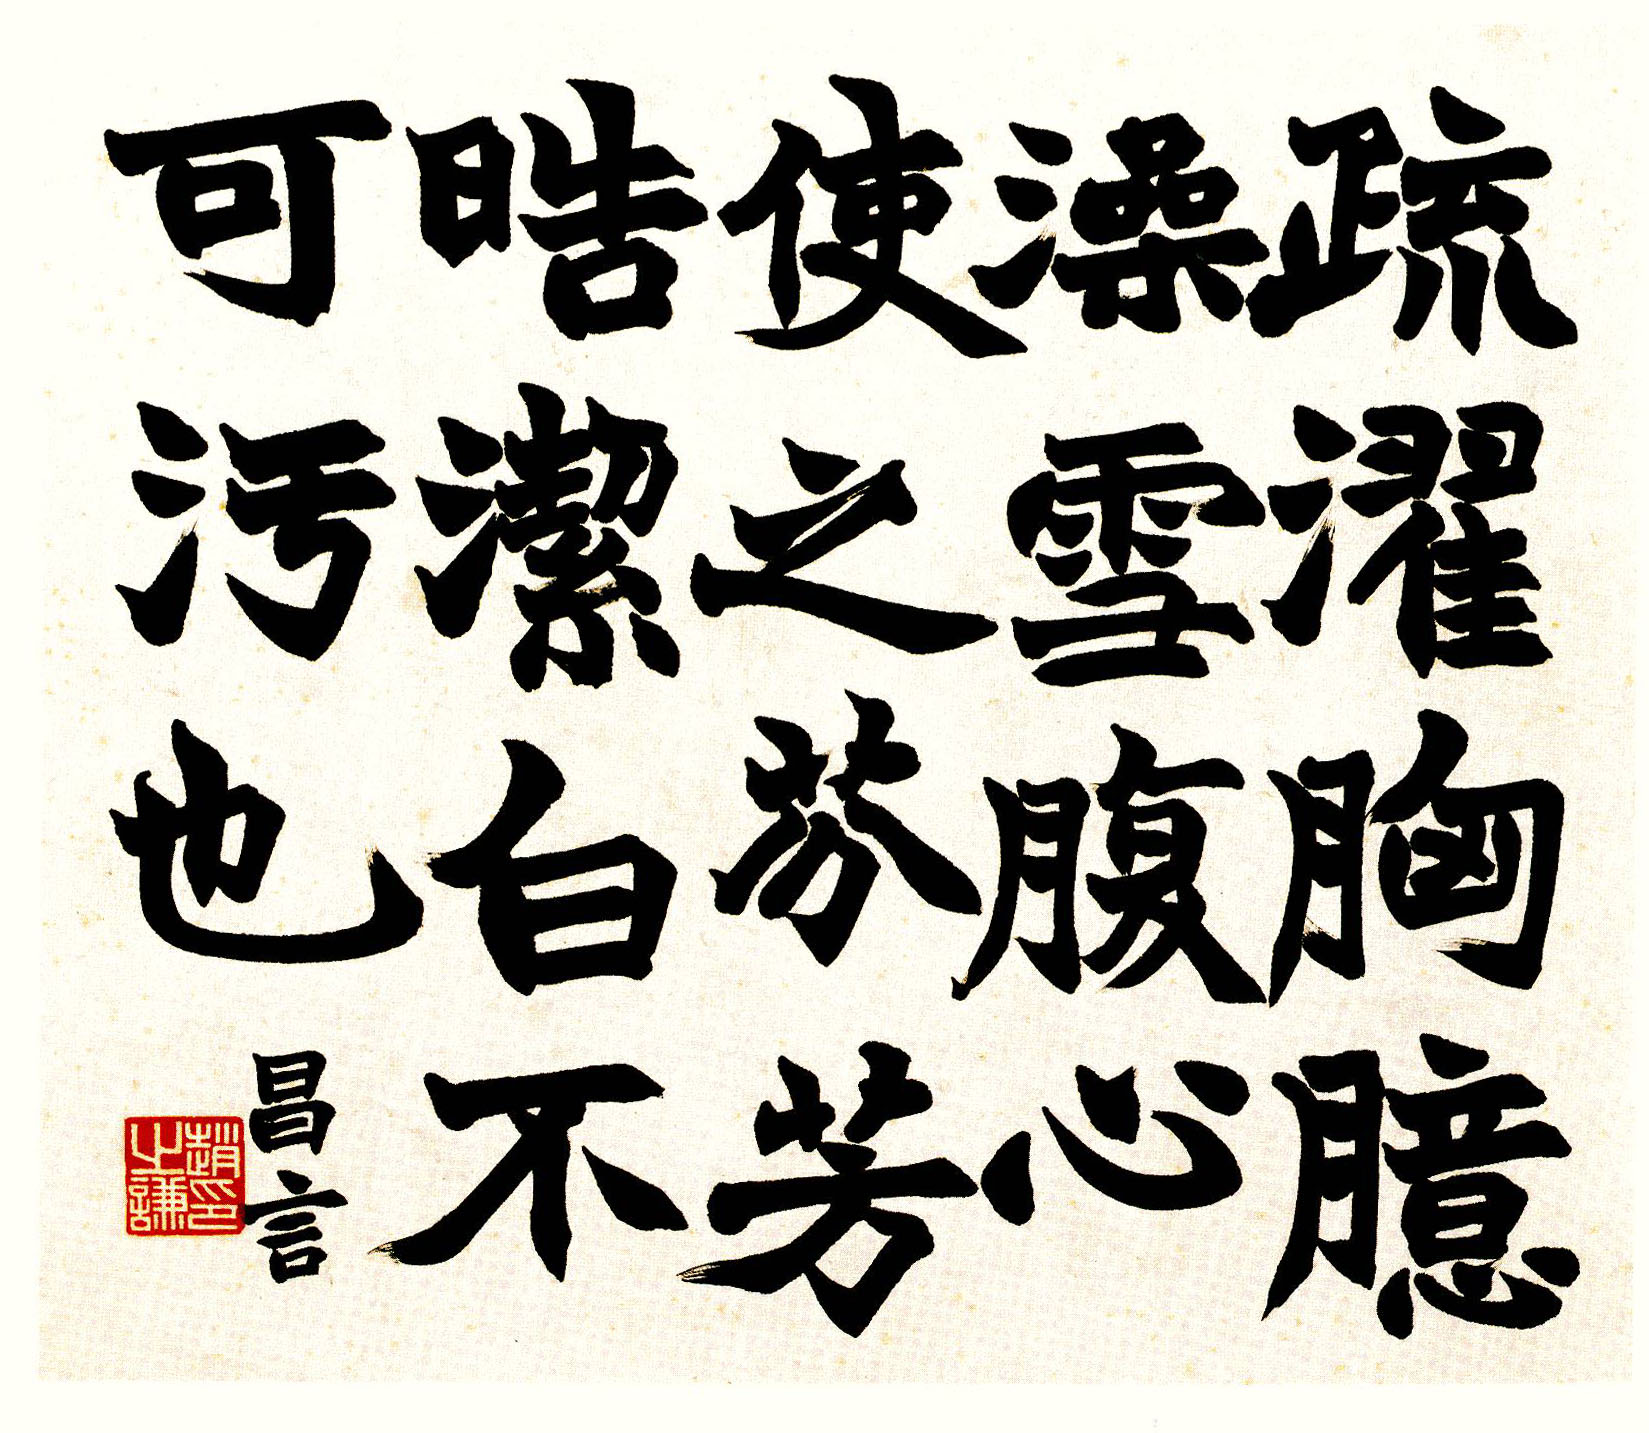 疏濯胸臆
澡雪腹心
使之芬芳
晧潔白不
可污也
昌言
趙之謙印